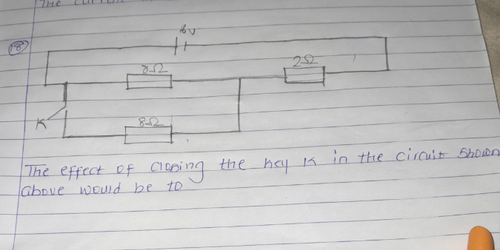 THE CURREN
18)
6V
8Ω
2Ω
K
8Ω
The effect of closing the key K in the circuit shown
above would be to